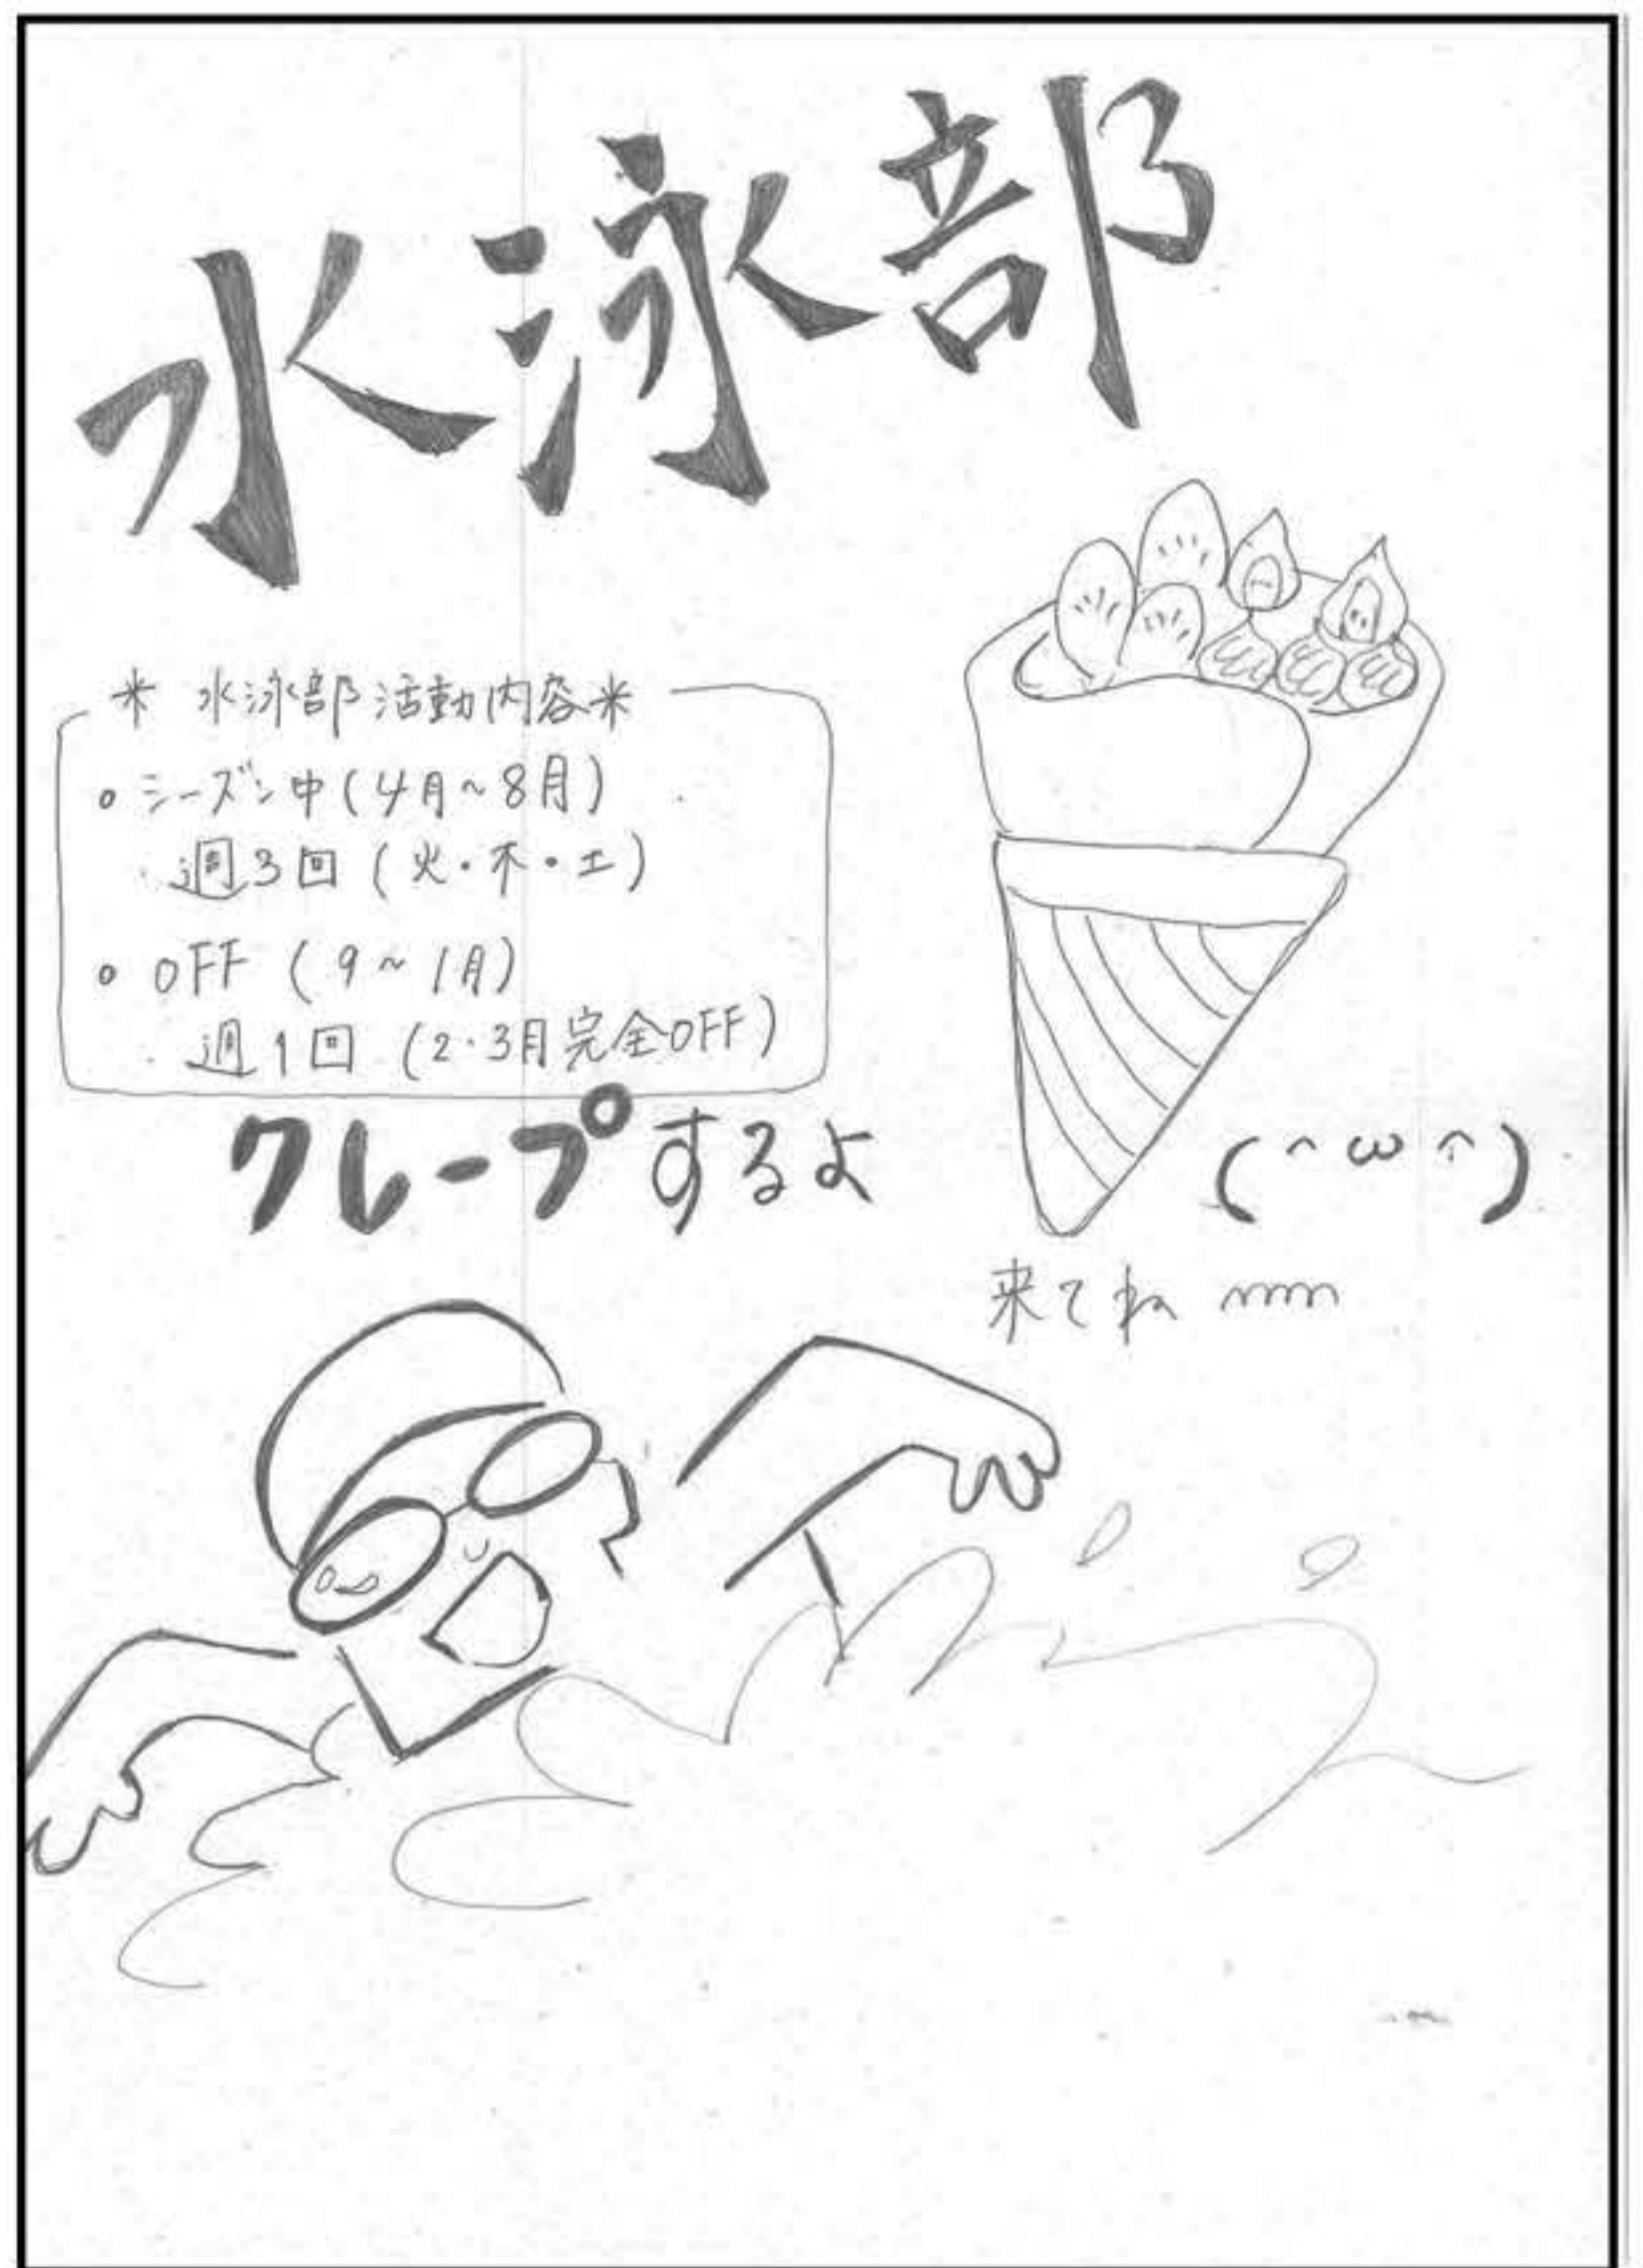 水泳部
* 水泳部活動内容 *
○ シーズン中(4月~8月)
週3回 (火・木・土)
○ OFF (9~1月)
週1回 (2・3月完全OFF)
クレープするよ
(^ω^)
来てね